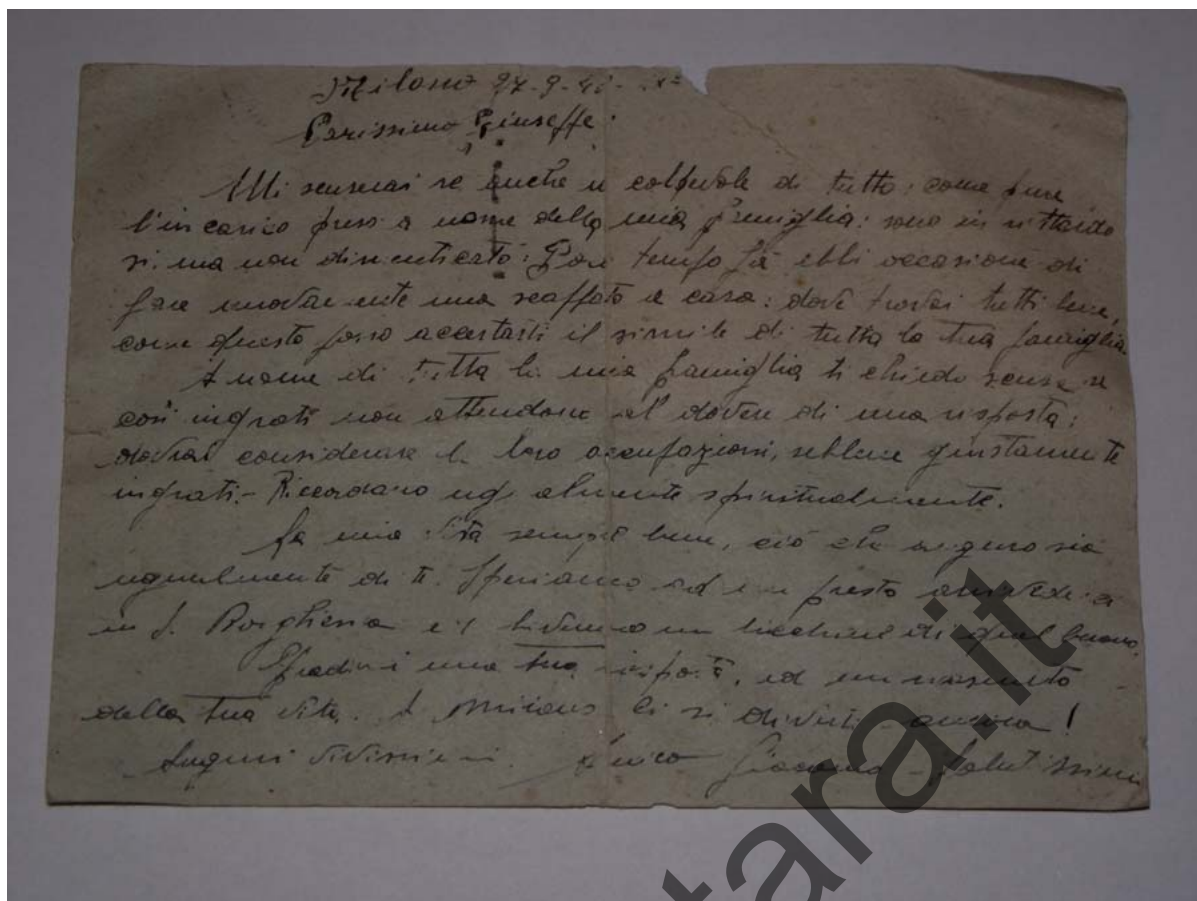 Milano 27-9-41-
Carissimo Giuseppe:
Mi scuserai se anche colpevole di tutto: come pure
l'incarico preso a nome della mia famiglia: sono in rittardo
si. ma non dimenticato: Poco tempo fà ebbi occasione di
fare nuovamente una scappata a casa: dove trovai tutti bene,
come questo posso accertarti il simile di tutta la tua famiglia.
A nome di tutta la mia famiglia ti chiedo scusa se
così ingrati non attendono al dovere di una risposta:
dovrai considerare le loro occupazioni, sebbene giustamente
ingrati.- Ricordano ugualmente spiritualmente.
La mia vita sempre bene, ciò che auguro sia
ugualmente di te. Speriamo ad un presto arrivederci
in S. Borghesia e bicchiere di quel buono.
Gradirei una tua risposta, ed un riassunto
della tua vita. A Milano ci si diverte ancora!
Auguri vivissimi. Amico Giacomo - Salutissimi
tara.it